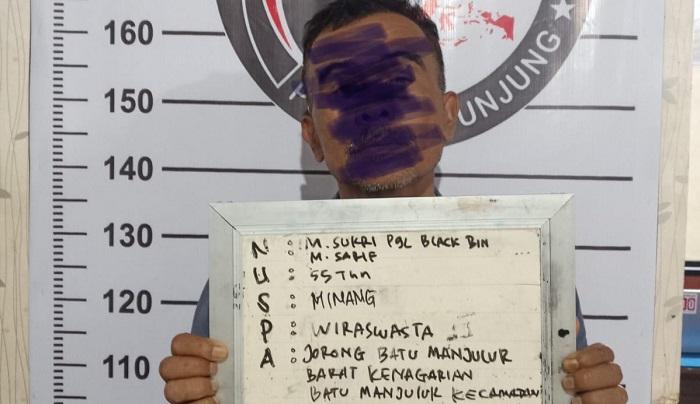 160
150
140
130
120
110
UNJUNG
N : M. SUKRI PGL BLACK BIN
M. SARIF
U : 55 Thn
S : MINANG
P : WIRASWASTA
A : JORONG BATU MANJULUR
BARAT KENAGARIAN
BATU MANJULUR KECAMATAN